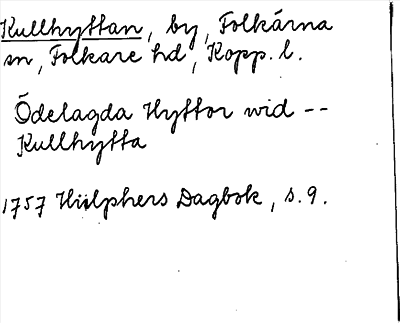 Kullhyttan, by, Folkärna
sn, Folkare hd, Kopp. l.
Ödelagda Hyttor wid --
Kullhytta
1757 Hülphers Dagbok, s. 9.